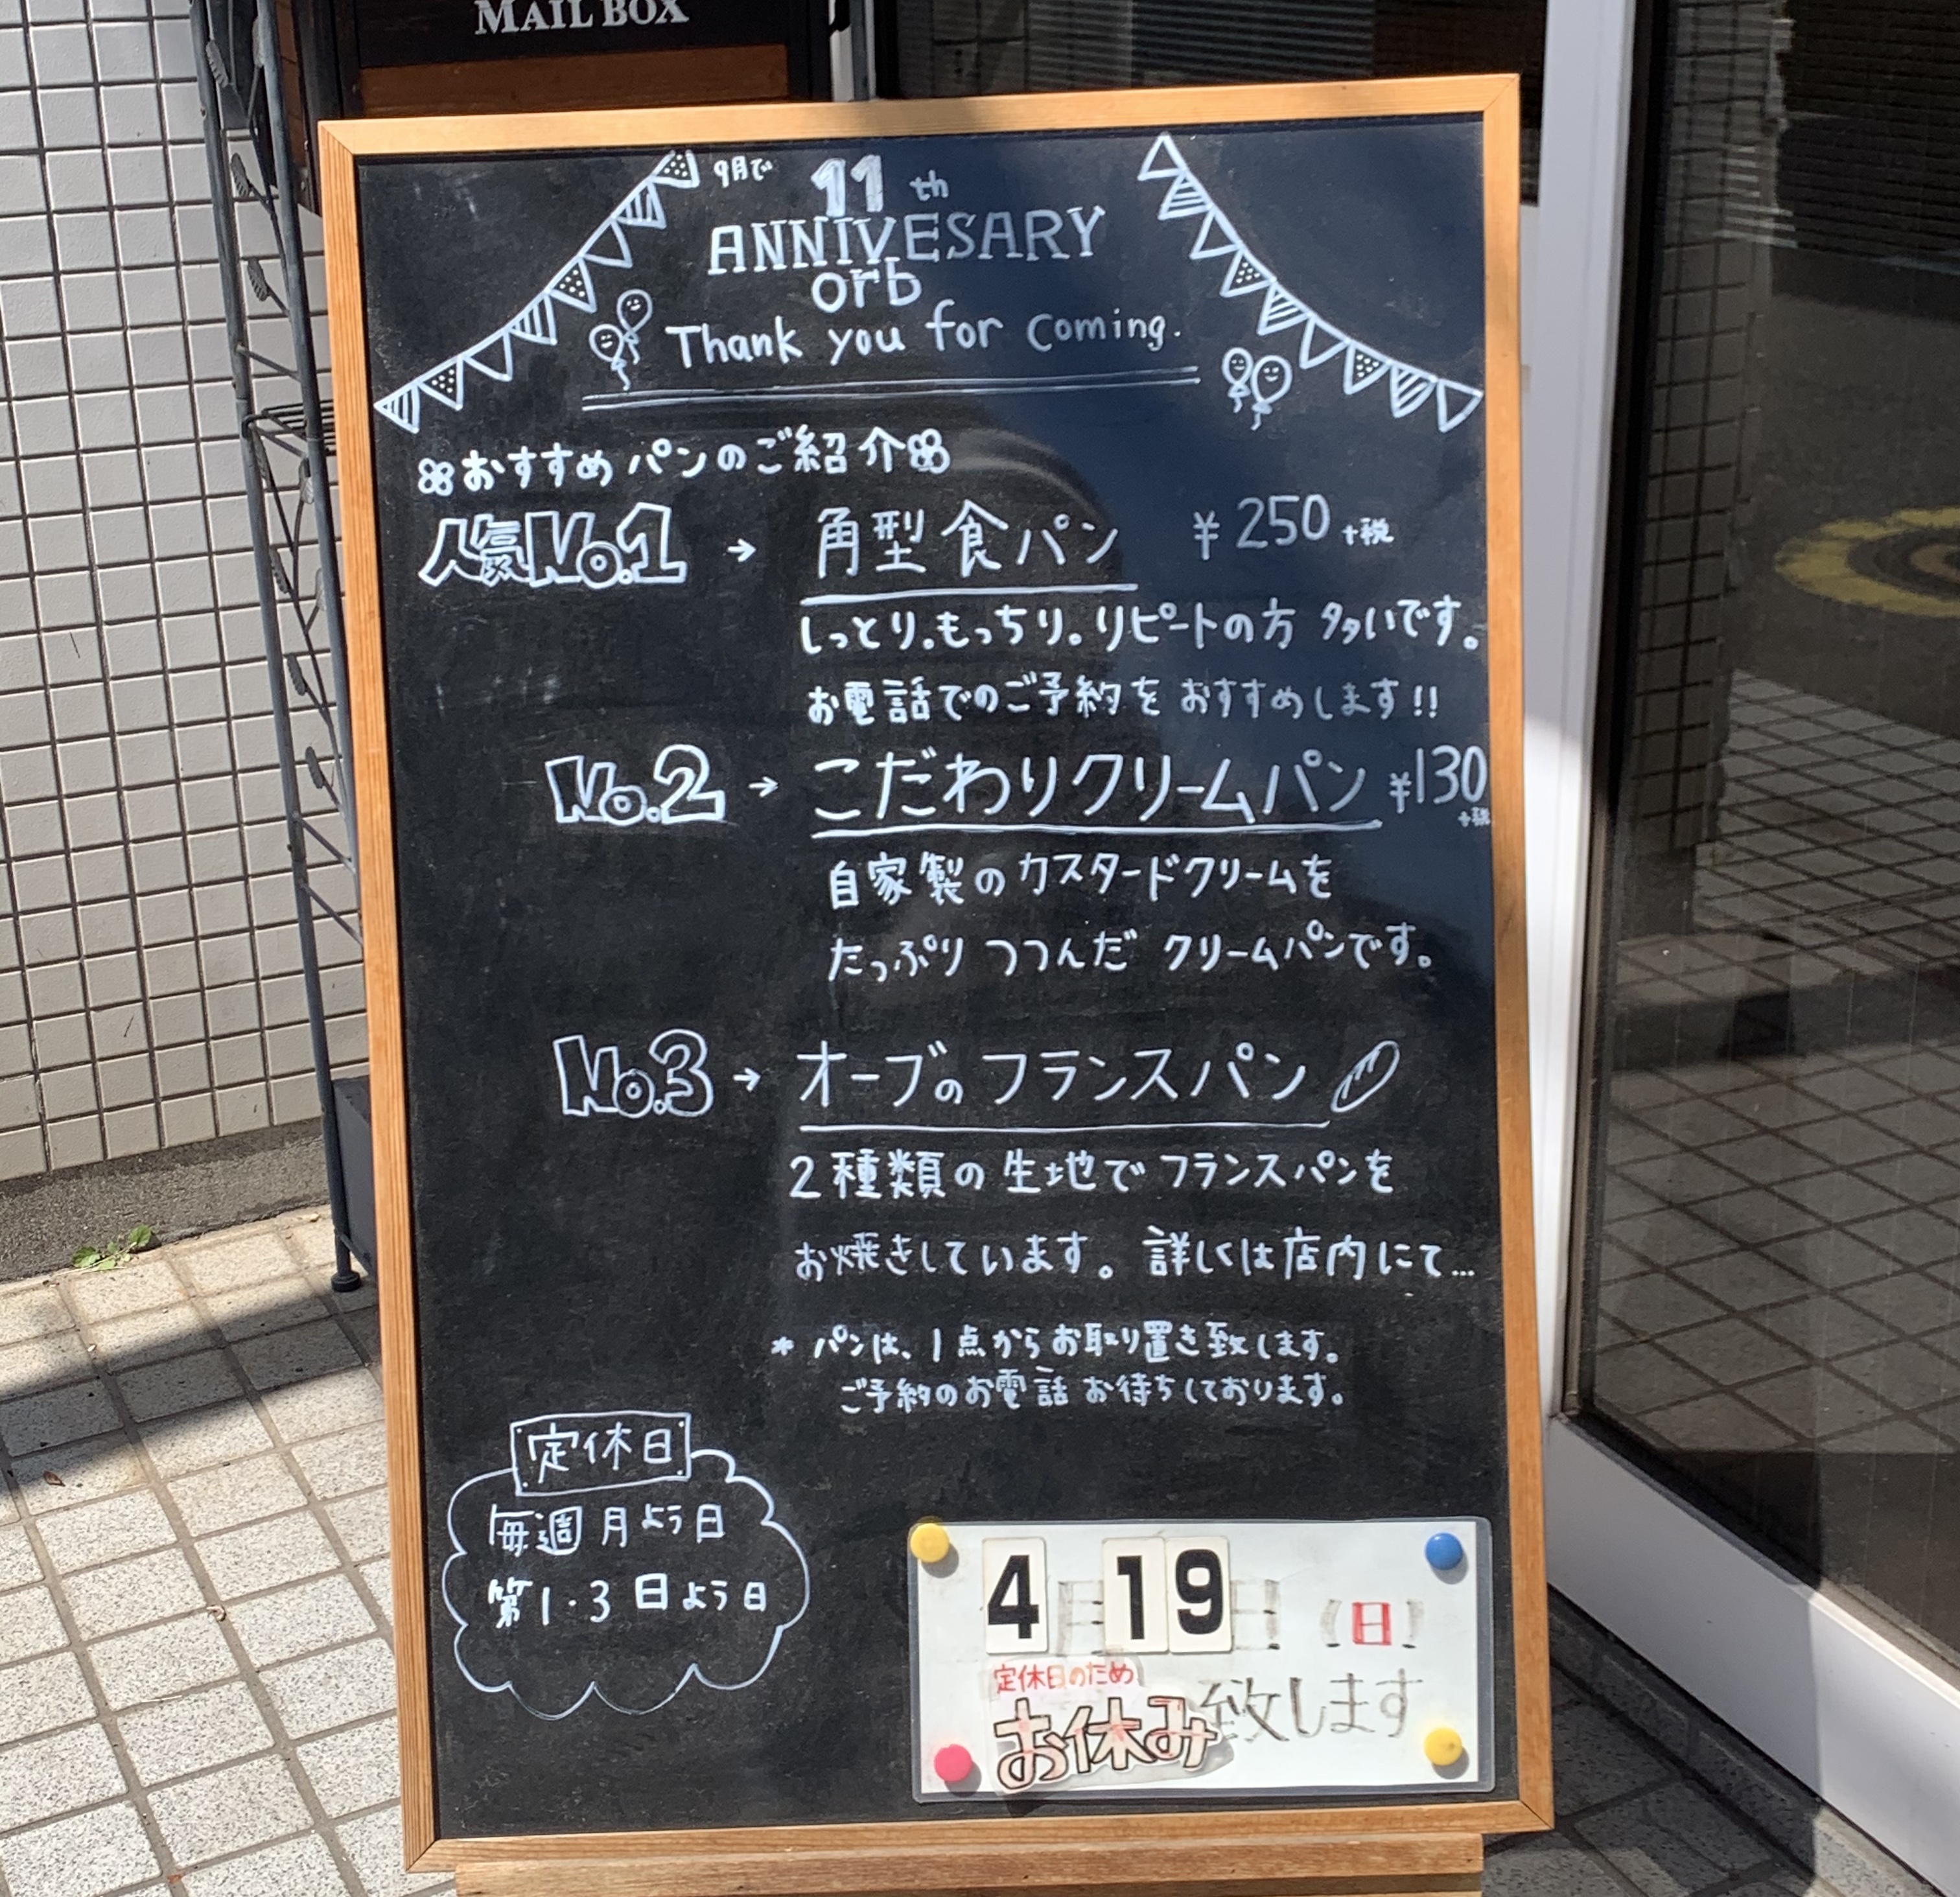 MAIL BOX
9月で 11th
ANNIVESARY
orb
Thank you for coming.
おすすめパンのご紹介
人気No.1 → 角型食パン ¥250+税
しっとり。もっちり。リピートの方 多いです。
お電話でのご予約を おすすめします!!
No.2 → こだわりクリームパン ¥130+税
自家製のカスタードクリームを
たっぷり つつんだ クリームパンです。
No.3 → オーブのフランスパン
2種類の生地でフランスパンを
お焼きしています。詳しくは店内にて…
* パンは、1点からお取り置き致します。
ご予約のお電話 お待ちしております。
定休日
毎週月よう日
第1・3日よう日
4月19日(日)
定休日のため
お休み致します